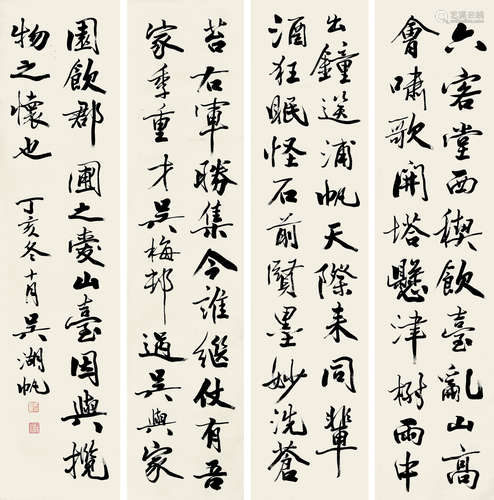 六客堂西稧飲臺亂山高
會嘯歌開塔懸津樹雨中
出鐘送浦帆天際来同輩
酒狂眠怪石前賢墨妙洗蒼
苔右軍勝集今誰繼仗有吾
家季重才 吳梅邨 過吳興家
園飲郡圃之愛山臺因與攬
物之懷也 丁亥冬十月吳湖帆